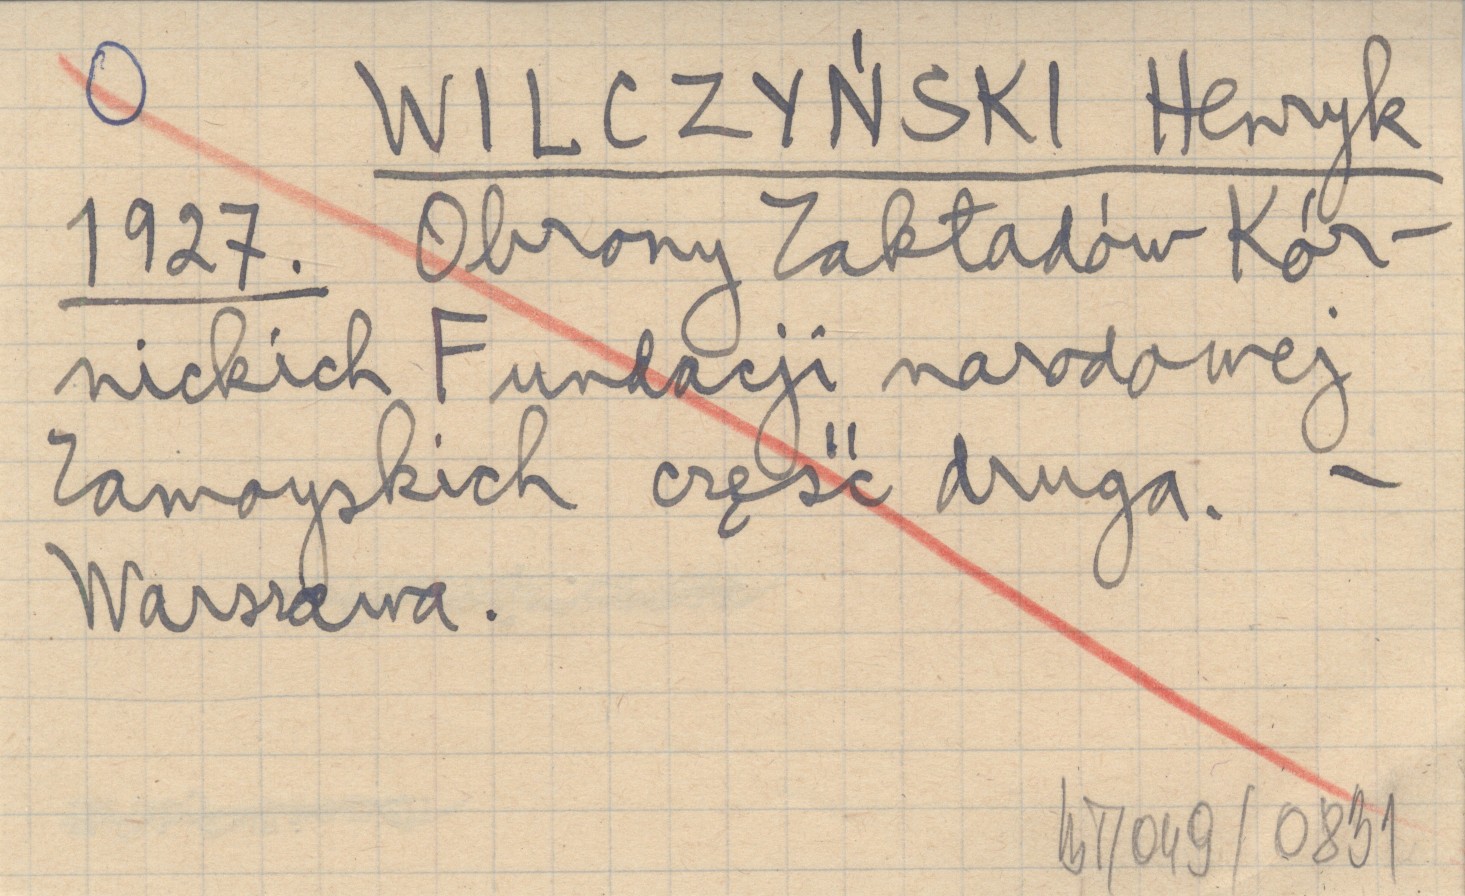 O WILCZYŃSKI Henryk
1927. Obrony Zakładów Kór-
nickich Fundacji narodowej
Zamoyskich część druga. -
Warszawa.
/049/0831